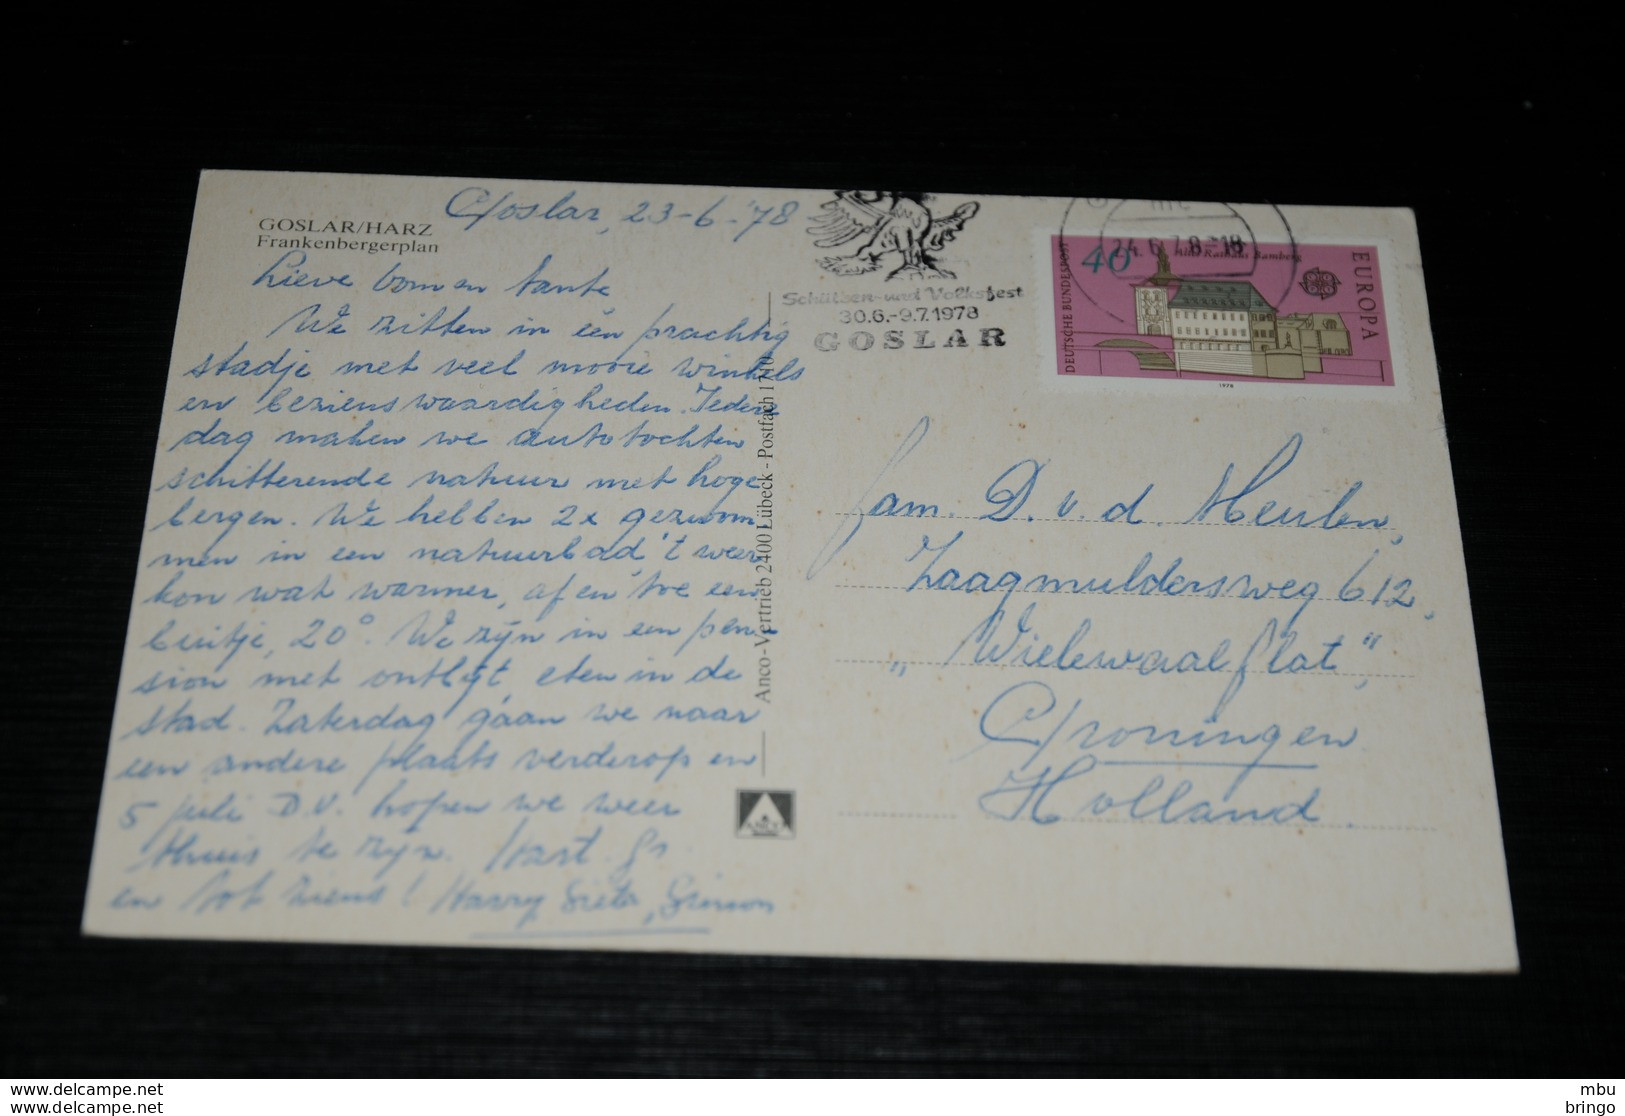 GOSLAR/HARZ
Frankenbergerplan
Goslar, 23-6-'78
Lieve Oom en Tante
We zitten in één prachtig
stadje met veel mooie winkels
en bezienswaardigheden. Iedere
dag maken we autotochten
schitterende natuur met hoge
bergen. We hebben 2x gezwom
men in een natuurbad, 't weer
kon wat warmer, af en toe een
buitje, 20°. We zijn in een pen
sion met ontbijt, eten in de
stad. Zaterdag gaan we naar
een andere plaats verderop en
5 juli D.V. hopen we weer
thuis te zijn. Hart. gr.
en tot ziens! Harry Sieta, Simon
Anco-Vertrieb 2400 Lübeck - Postfach 1710
Schützen- und Volksfest
30.6.-9.7.1978
GOSLAR
24.6.78-18
40
Altes Rathaus Bamberg
EUROPA
DEUTSCHE BUNDESPOST
1978
fam. D. v. d. Meulen,
Zaagmuldersweg 612,
„Wielewaalflat",
Groningen
Holland.
mbu
bringo